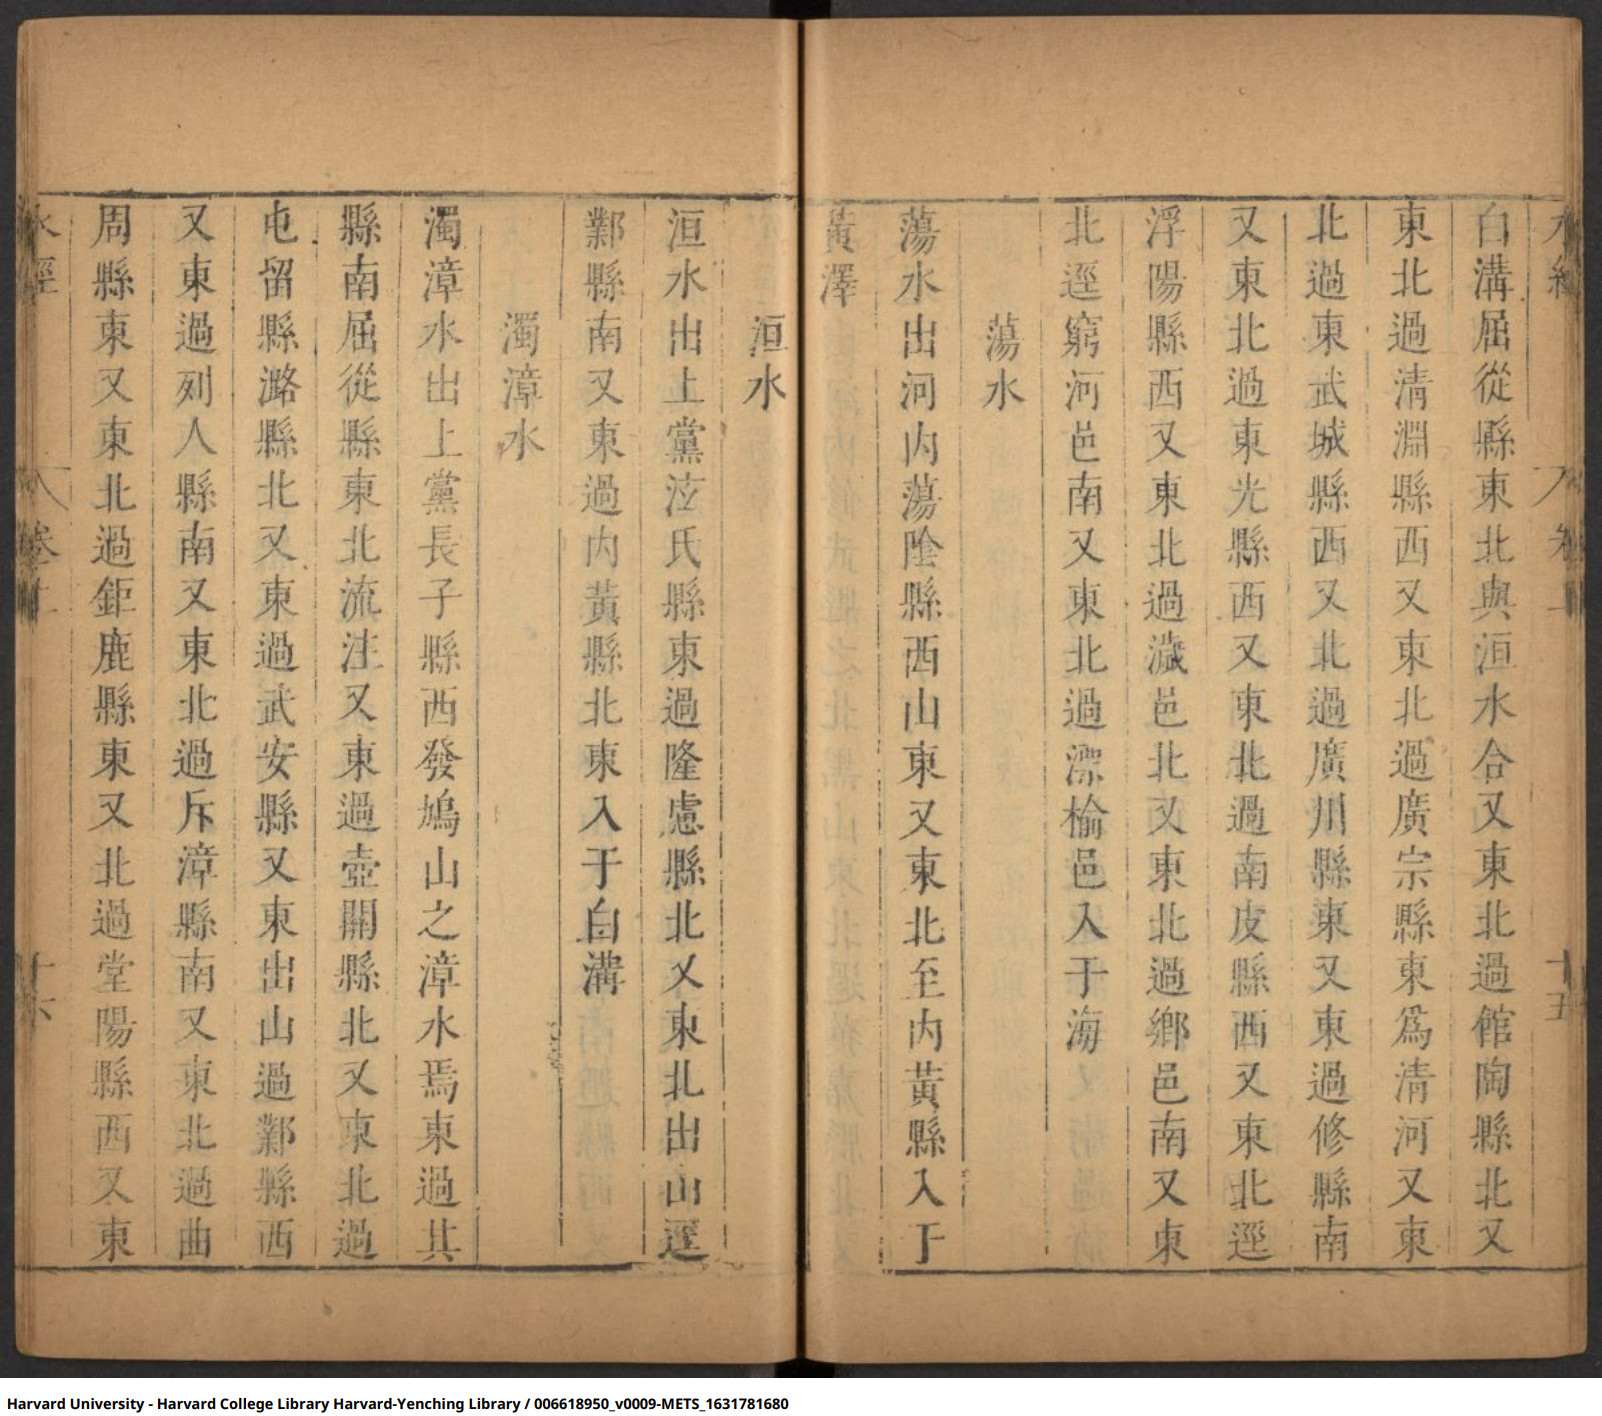 白溝屈從縣東北與洹水合又東北過館陶縣北又
東北過清淵縣西又東北過廣宗縣東爲清河又東
北過東武城縣西又北過廣川縣東又東過修縣南
又東北過東光縣西又東北過南皮縣西又東北逕
浮陽縣西又東北過濊邑北又東北過鄉邑南又東
北逕窮河邑南又東北過漂榆邑入于海
蕩水
蕩水出河内蕩陰縣西山東又東北至内黃縣入于
黃澤
洹水
洹水出上黨泫氏縣東過隆慮縣北又東北出山逕
鄴縣南又東過内黃縣北東入于白溝
濁漳水
濁漳水出上黨長子縣西發鳩山之漳水焉東過其
縣南屈從縣東北流注又東過壺關縣北又東北過
屯留縣潞縣北又東過武安縣又東出山過鄴縣西
又東過列人縣南又東北過斥漳縣南又東北過曲
周縣東又東北過鉅鹿縣東又北過堂陽縣西又東
水經
卷上
十六
Harvard University - Harvard College Library Harvard-Yenching Library / 006618950_v0009-METS_1631781680